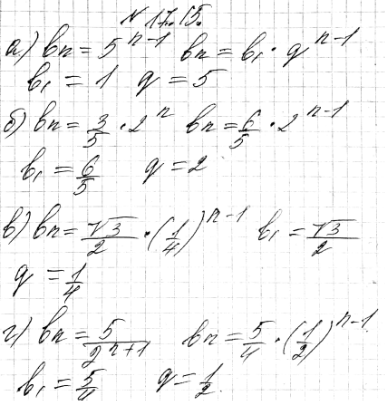 № 17.15.
а) bn = 5^(n-1) bn = b₁ · q^(n-1)
b₁ = 1 q = 5
б) bn = 3/5 · 2^n bn = 6/5 · 2^(n-1)
b₁ = 6/5 q = 2
в) bn = √3/2 · (1/4)^(n-1) b₁ = √3/2
q = 1/4
г) bn = 5/2^(n+1) bn = 5/4 · (1/2)^(n-1)
b₁ = 5/4 q = 1/2